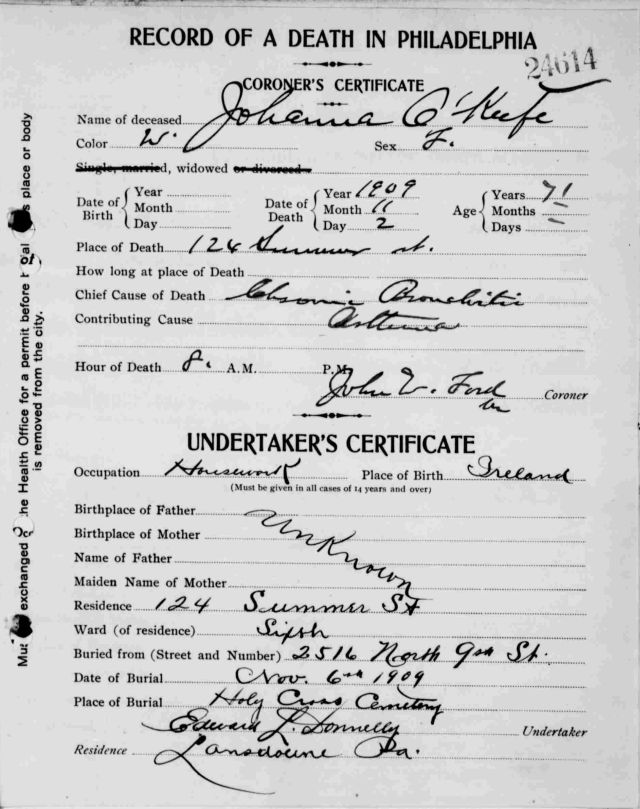 RECORD OF A DEATH IN PHILADELPHIA
24614
CORONER'S CERTIFICATE
Name of deceased Johanna O'Keefe
Color W. Sex F.
Single, married, widowed or divorced
Date of Birth { Year Month Day Date of Death { Year 1909 Month 11 Day 2 Age { Years 71 Months – Days –
Place of Death 124 Summer st.
How long at place of Death
Chief Cause of Death Chronic Bronchitis
Contributing Cause Asthma
Hour of Death 8. A.M. P.M.
John Ford Coroner
UNDERTAKER'S CERTIFICATE
Occupation Housework Place of Birth Ireland
(Must be given in all cases of 14 years and over)
Birthplace of Father
Birthplace of Mother Unknown
Name of Father
Maiden Name of Mother
Residence 124 Summer St
Ward (of residence) Sixth
Buried from (Street and Number) 2516 North 9th St.
Date of Burial Nov. 6th 1909
Place of Burial Holy Cross Cemetery
Edward J. Donnelly Undertaker
Residence Lansdowne Pa.
exchanged he Health Office for a permit before place or body
is removed from the city.